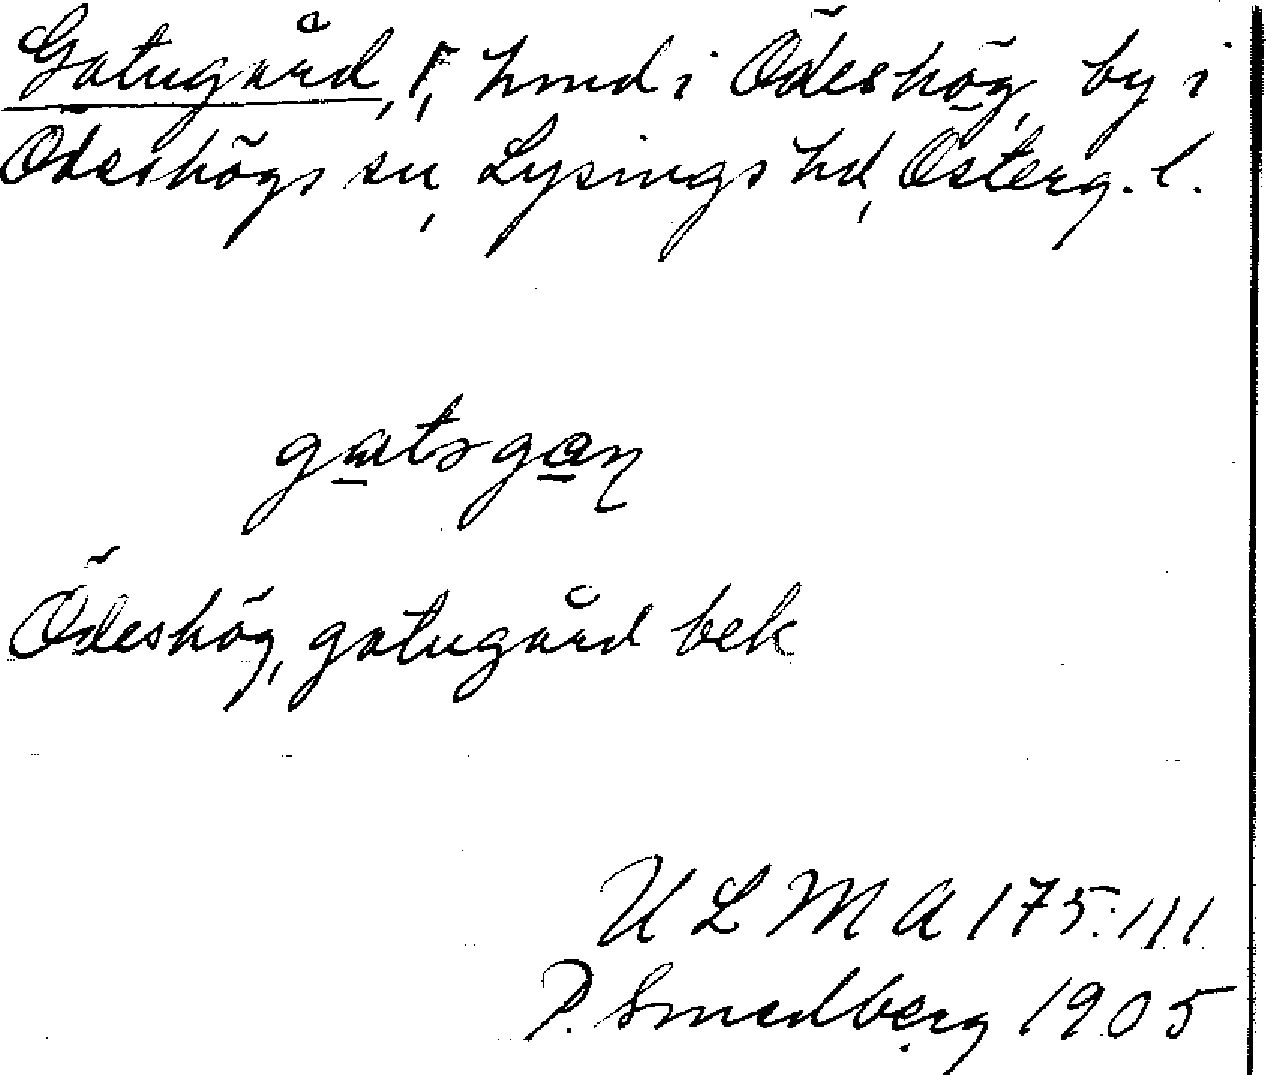 Gatugård, f, hmd i Ödeshög, by i
Ödeshögs sn, Lysings hd, Österg. l.
Ödeshög, gatugård bek
U L M A 175:111
P. Smedberg 1905